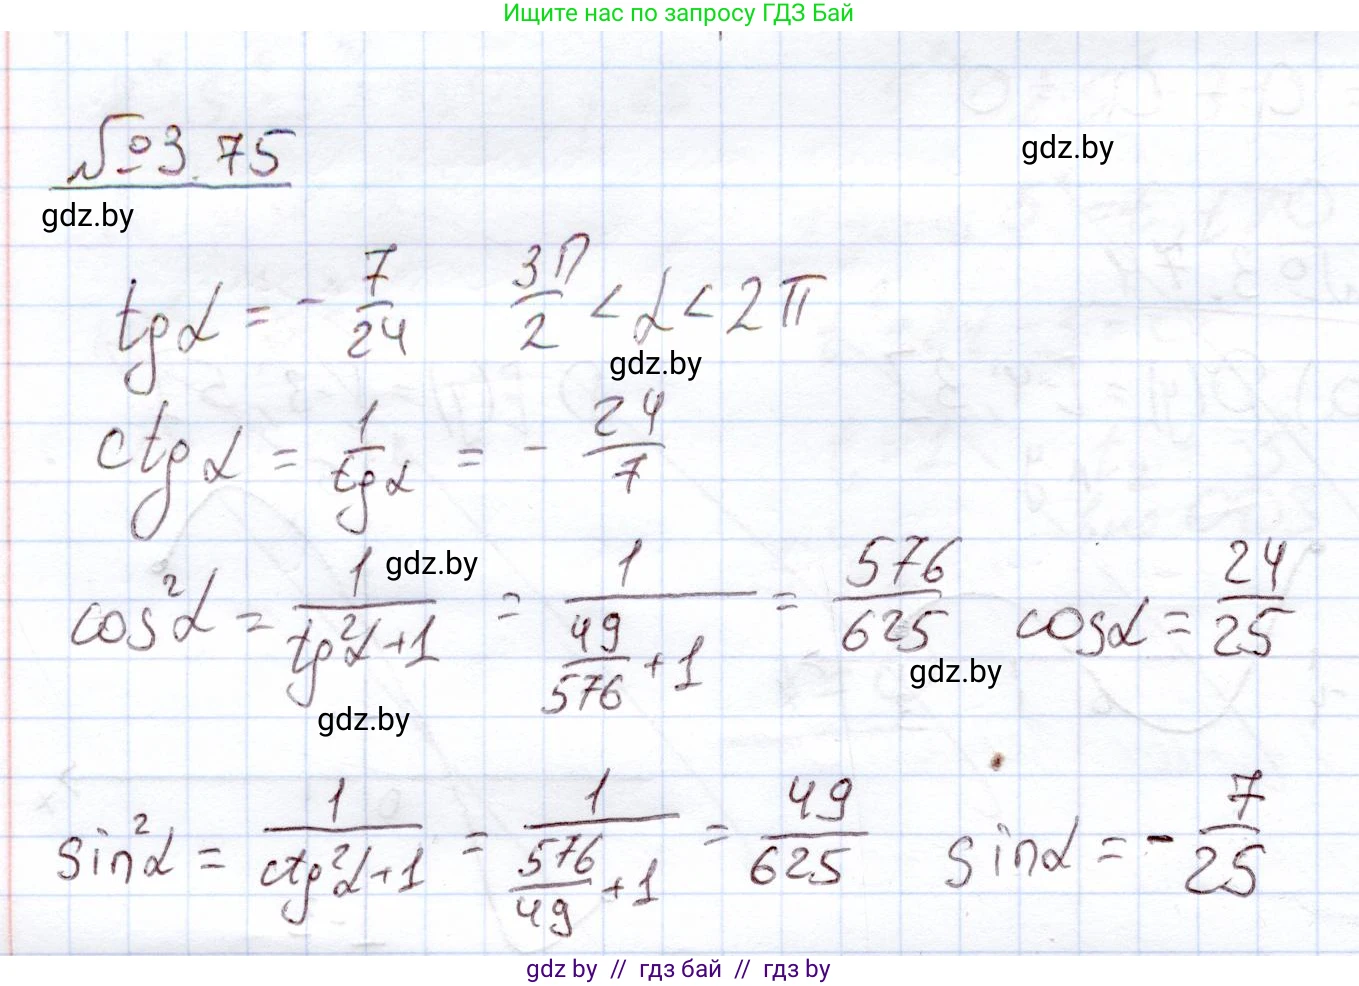 Ищите нас по запросу ГДЗ Бай
№3.75
gdz.by
gdz.by
tgα = - 7/24   3π/2 < α < 2π
gdz.by
ctgα = 1/tgα = - 24/7
gdz.by
cos²α = 1/(tg²α+1) = 1/(49/576 + 1) = 576/625   cosα = 24/25
gdz.by
gdz.by
sin²α = 1/(ctg²α+1) = 1/(576/49 + 1) = 49/625   sinα = - 7/25
gdz.by // гдз бай // гдз by